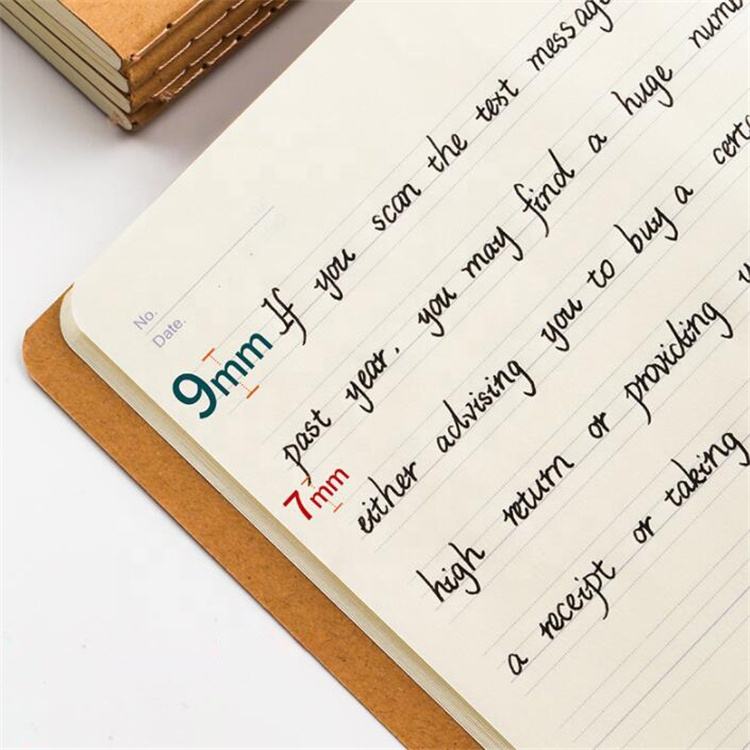 No.
Date.
9mm
If you scan the test messag
past year. you may find a huge num
7mm
either advising you to buy a cert
high return or providing
a receipt or taking